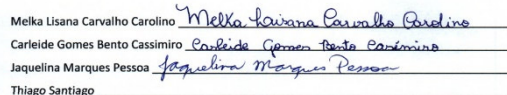 Melka Lisana Carvalho Carolino Melka Laisana Carvalho Carolino
Carleide Gomes Bento Cassimiro Carleide Gomes Bento Casimiro
Jaquelina Marques Pessoa Jaquelina Marques Pessoa
Thiago Santiago